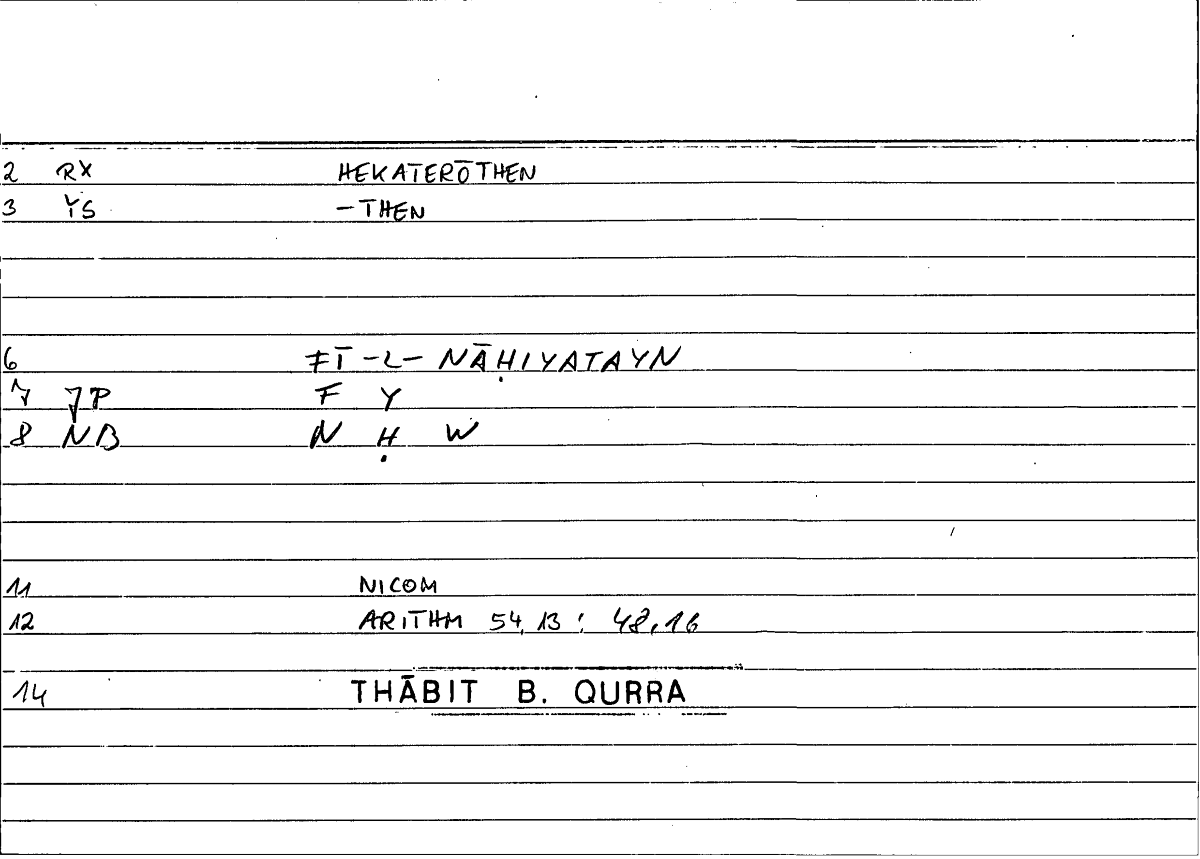 2 RX HEKATERŌTHEN
3 YS -THEN
6 FĪ-L-NĀḤIYATAYN
7 JP F Y
8 NB N Ḥ W
11 NICOM
12 ARITHM 54,13 : 48,16
14 THĀBIT B. QURRA